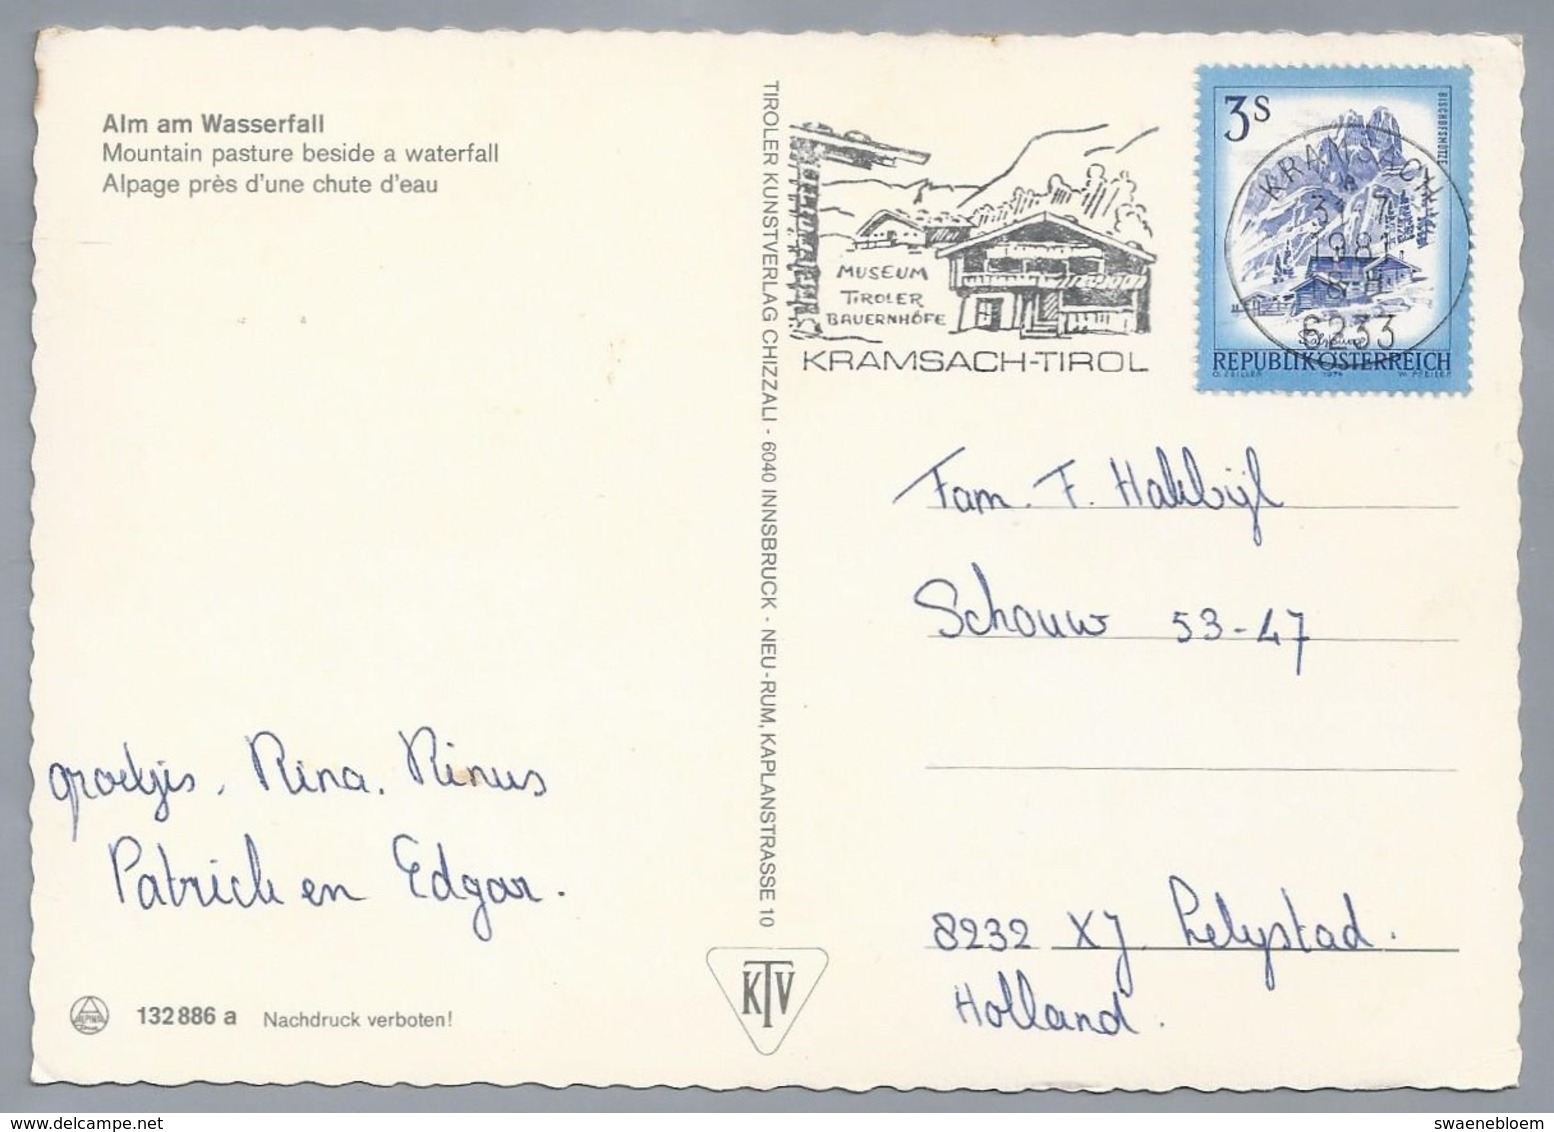 Alm am Wasserfall
Mountain pasture beside a waterfall
Alpage près d'une chute d'eau
groetjes. Rina. Rinus
Patrick en Edgar.
132886 a Nachdruck verboten!
TIROLER KUNSTVERLAG CHIZZALI - 6040 INNSBRUCK - NEU-RUM, KAPLANSTRASSE 10
KTV
MUSEUM
TIROLER
BAUERNHÖFE
KRAMSACH-TIROL
3S
BISCHOFSMÜTZE
KRAMSACH
1981
6233
Salzburg
REPUBLIK ÖSTERREICH
O. ZEILLER 1974 W. PFEILER
Fam. F. Hakbijl
Schouw 53-47
8232 XJ Lelystad.
Holland.
swaenebloem